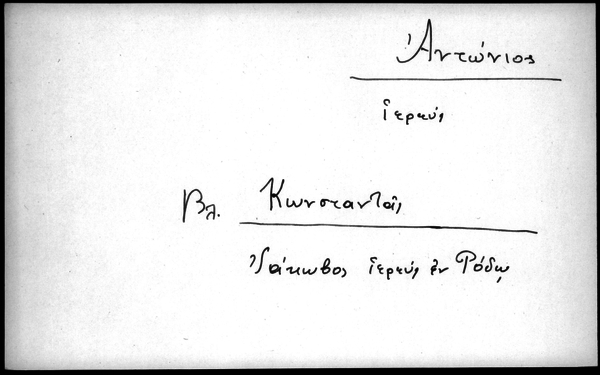 Ἀντώνιος
ἱερεύς
Βλ. Κωνσταντᾶς
Ἰάκωβος ἱερεύς ἐν Ρόδῳ